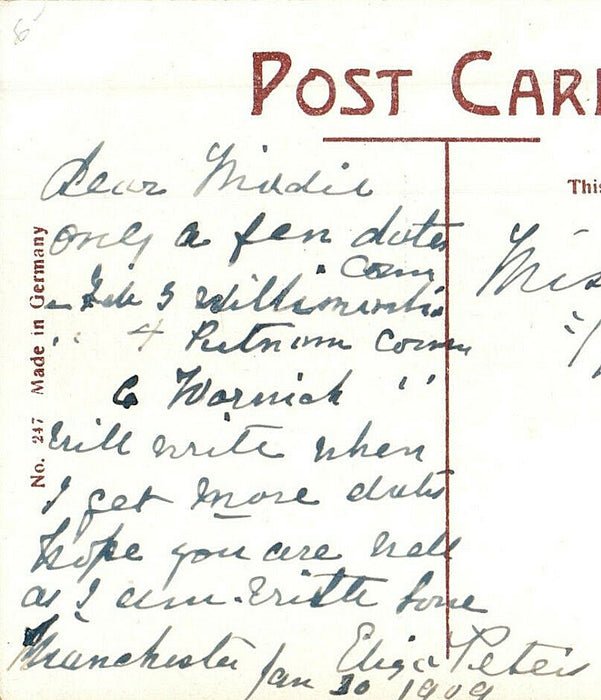 POST CAR
This
No. 247 Made in Germany
Dear Miadie
only a few dates
Conn
Feb 3 Willimantic
" 4 Putnam Conn
6 Warwick "
Will write when
I get more dates
hope you are well
as I am. With love
Eliza Peters
Manchester Jan 30 1909
Miss